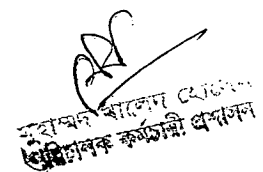 মুহাম্মদ খালেদ হোসেন
পরিচালক কর্মচারী প্রশাসন